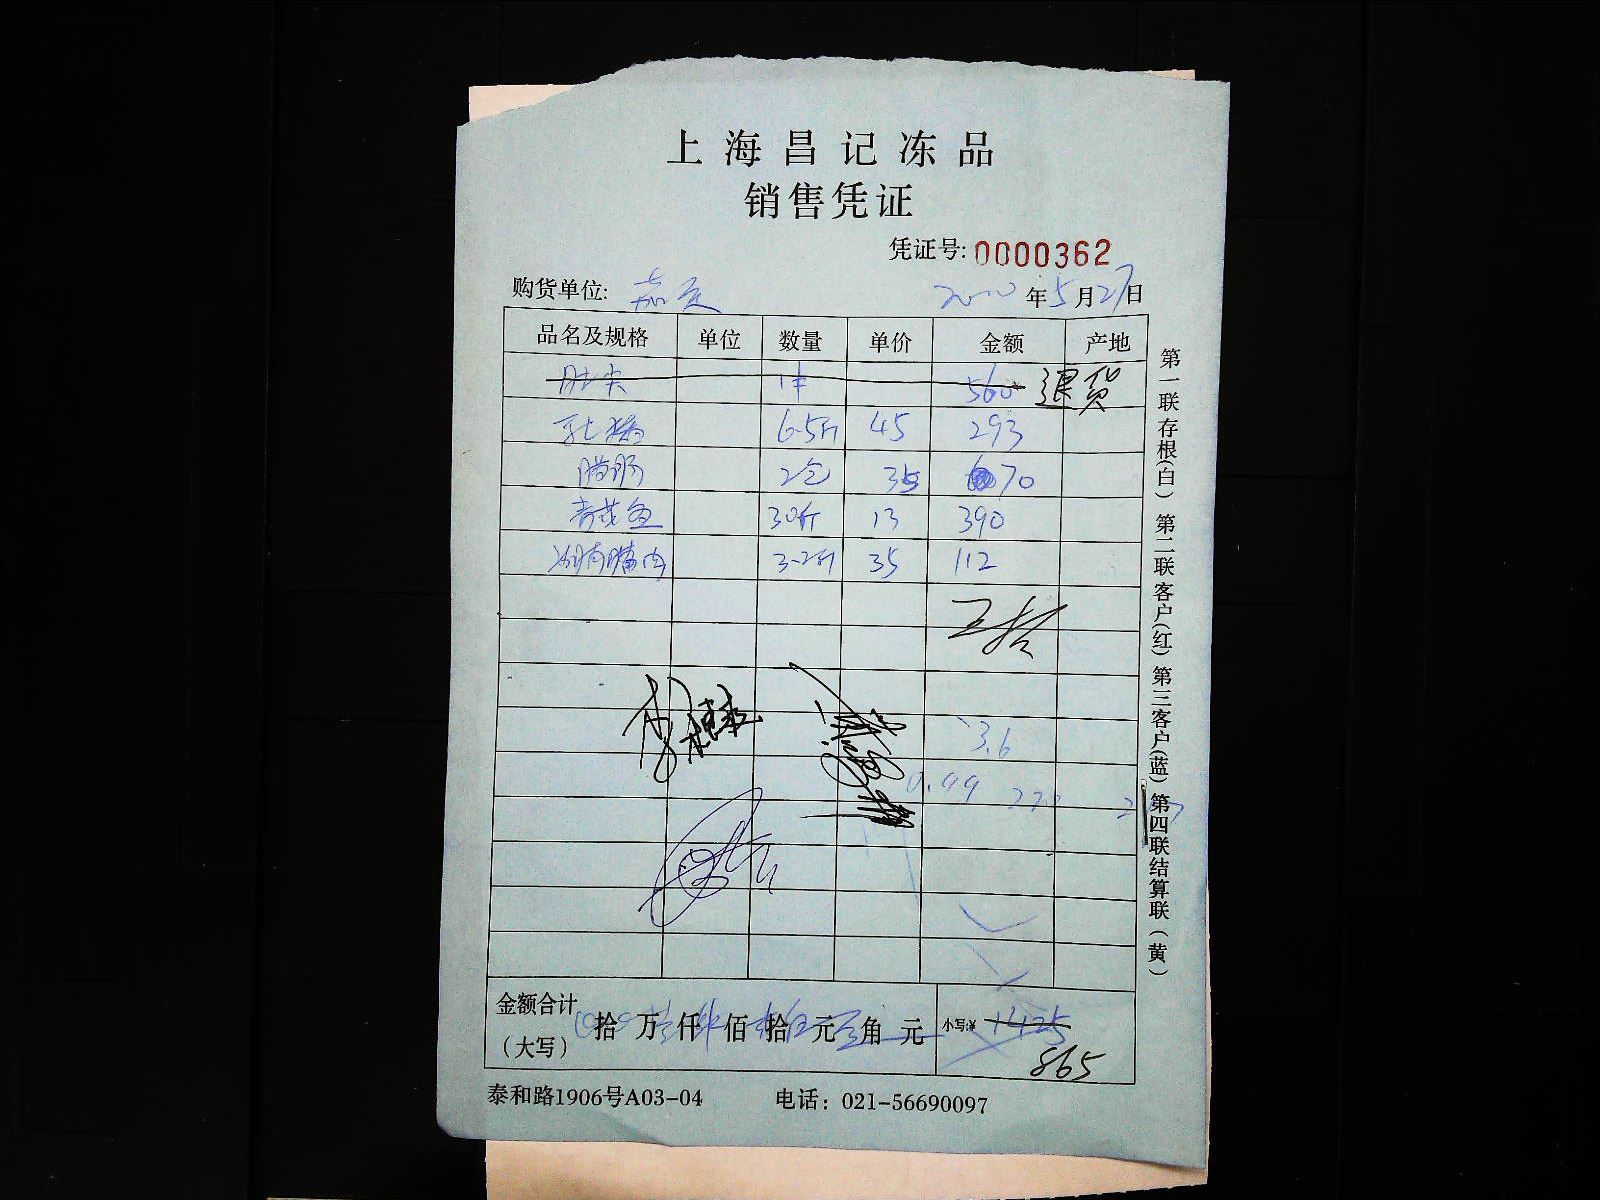 上海昌记冻品
销售凭证
凭证号: 0000362
购货单位: 年5月27日
品名及规格 单位 数量 单价 金额 产地
肚尖 1件 560 退货
6.5斤 45 293
腊肠 2包 35 70
青花鱼 30斤 13 390
3.2斤 35 112
3.6
0.99
金额合计
(大写) 拾 万 仟 佰 拾 元 角 元 小写:¥ 1425
865
泰和路1906号A03-04 电话: 021-56690097
第一联存根(白) 第二联客户(红) 第三客户(蓝) 第四联结算联(黄)